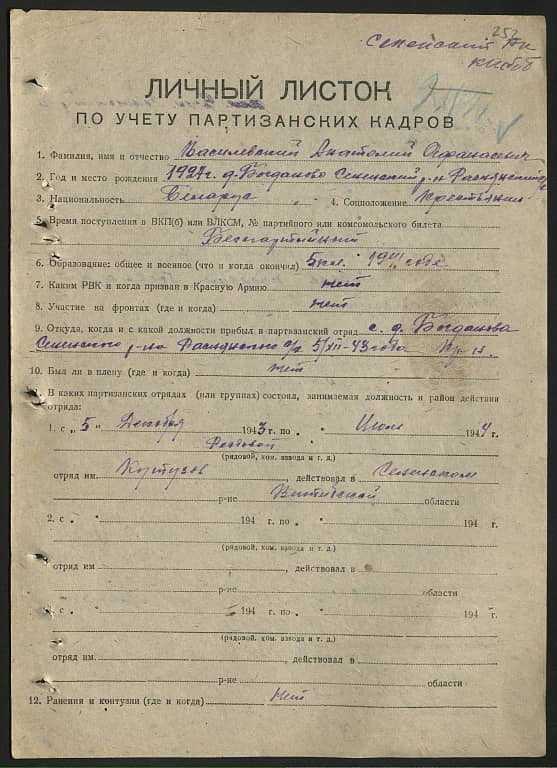 252
Сененский
ЛИЧНЫЙ ЛИСТОК
ПО УЧЕТУ ПАРТИЗАНСКИХ КАДРОВ
1. Фамилия, имя и отчество Василевский Анатолий Афанасевич
2. Год и место рождения д. Богданово Сененский р-н
3. Национальность Беларус 4. Соцположение
5. Время поступления в ВКП(б) или ВЛКСМ, № партийного или комсомольского билета
Беспартийный
6. Образование: общее и военное (что и когда окончил) 5 кл. 1941 годе
7. Каким РВК и когда призван в Красную Армию нет
8. Участие на фронтах (где и когда) нет
9. Откуда, когда и с какой должности прибыл в партизанский отряд с. д. Богданова
Сененского р-на 5/XII-43 года
10. Был ли в плену (где и когда) нет
11. В каких партизанских отрядах (или группах) состоял, занимаемая должность и район действия
отряда:
1. с „5 Декабря 1943 г. по „ Июль 1944 г.
Рядовой
(рядовой, ком. взвода и т. д.)
отряд им. Кутузов, действовал в Сененском
р-не Витебской области
2. с „ 194 г. по „ 194 г.
(рядовой, ком. взвода и т. д.)
отряд им., действовал в
р-не области
с „ 194 г. по „ 194 г.
(рядовой, ком. взвода и т. д.)
отряд им. действовал в
р-не области
12. Ранения и контузии (где и когда) Нет